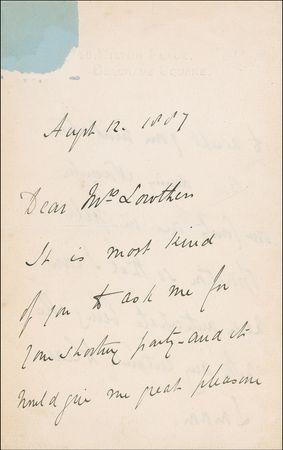 Augst 12. 1887
Dear Mrs Lowther
It is most kind
of you to ask me for
your shooting party - and it
would give me great pleasure